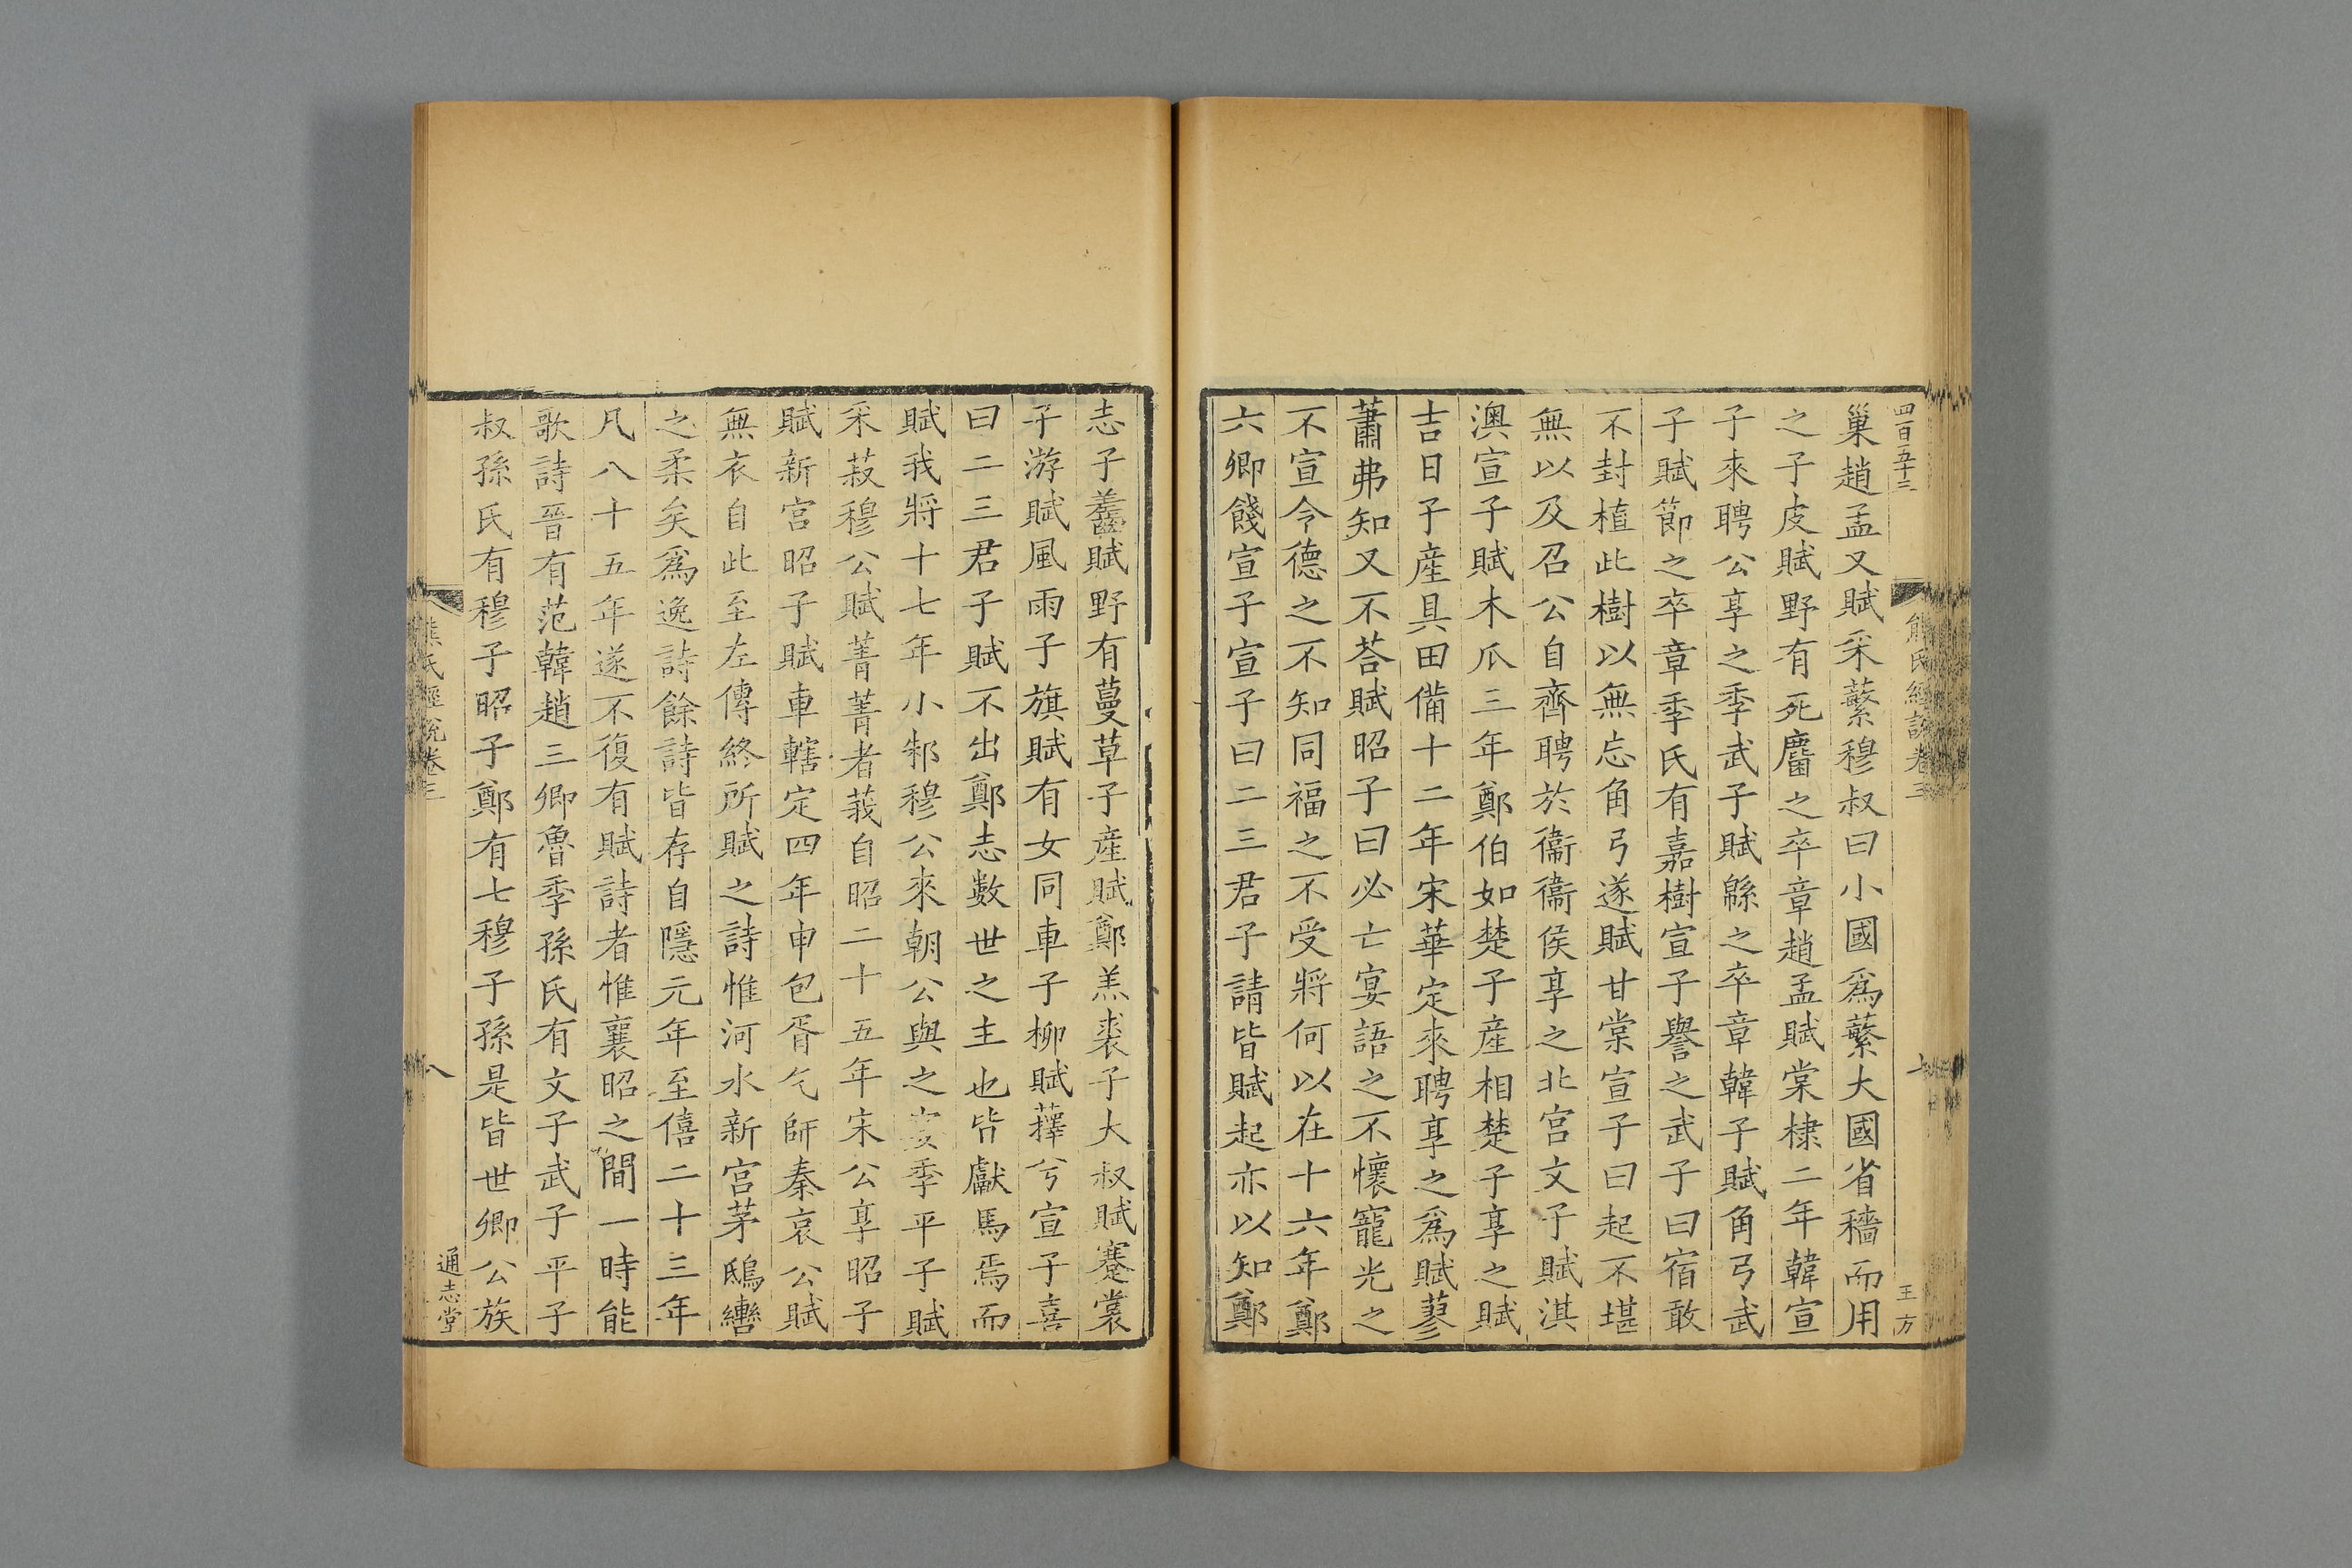 四百五十三
巢趙孟又賦采蘩穆叔曰小國爲蘩大國省穡而用
之子皮賦野有死麕之卒章趙孟賦棠棣二年韓宣
子來聘公享之季武子賦緜之卒章韓子賦角弓武
子賦節之卒章季氏有嘉樹宣子譽之武子曰宿敢
不封植此樹以無忘角弓遂賦甘棠宣子曰起不堪
無以及召公自齊聘於衞衞侯享之北宮文子賦淇
澳宣子賦木瓜三年鄭伯如楚子產相楚子享之賦
吉日子產具田備十二年宋華定來聘享之爲賦蓼
蕭弗知又不荅賦昭子曰必亡宴語之不懷寵光之
不宣令德之不知同福之不受將何以在十六年鄭
六卿餞宣子宣子曰二三君子請皆賦起亦以知鄭
熊氏經說卷三
王方
志子齹賦野有蔓草子產賦鄭羔裘子大叔賦蹇裳
子游賦風雨子旗賦有女同車子柳賦蘀兮宣子喜
曰二三君子賦不出鄭志數世之主也皆獻馬焉而
賦我將十七年小邾穆公來朝公與之宴季平子賦
采菽穆公賦菁菁者莪自昭二十五年宋公享昭子
賦新宮昭子賦車轄定四年申包胥乞師秦哀公賦
無衣自此至左傳終所賦之詩惟河水新宮茅鴟轡
之柔矣爲逸詩餘詩皆存自隱元年至僖二十三年
凡八十五年遂不復有賦詩者惟襄昭之間一時能
歌詩晉有范韓趙三卿魯季孫氏有文子武子平子
叔孫氏有穆子昭子鄭有七穆子孫是皆世卿公族
熊氏經說卷三
八
通志堂